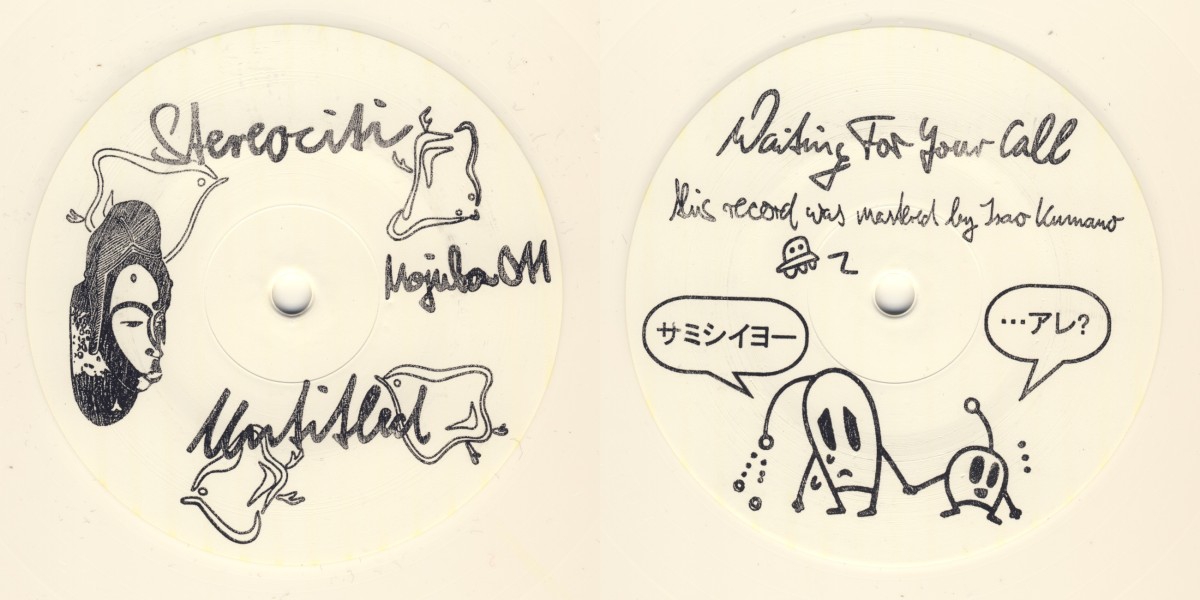 Stereociti
Mojuba 011
Untitled
Waiting For Your Call
this record was mastered by Isao Kumano
サミシイヨー
…アレ?